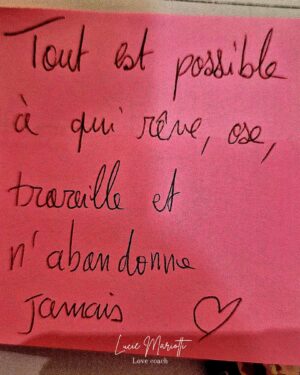 Tout est possible
à qui rêve, ose,
travaille et
n'abandonne
jamais ♡
Lucie Mariotti
Love coach